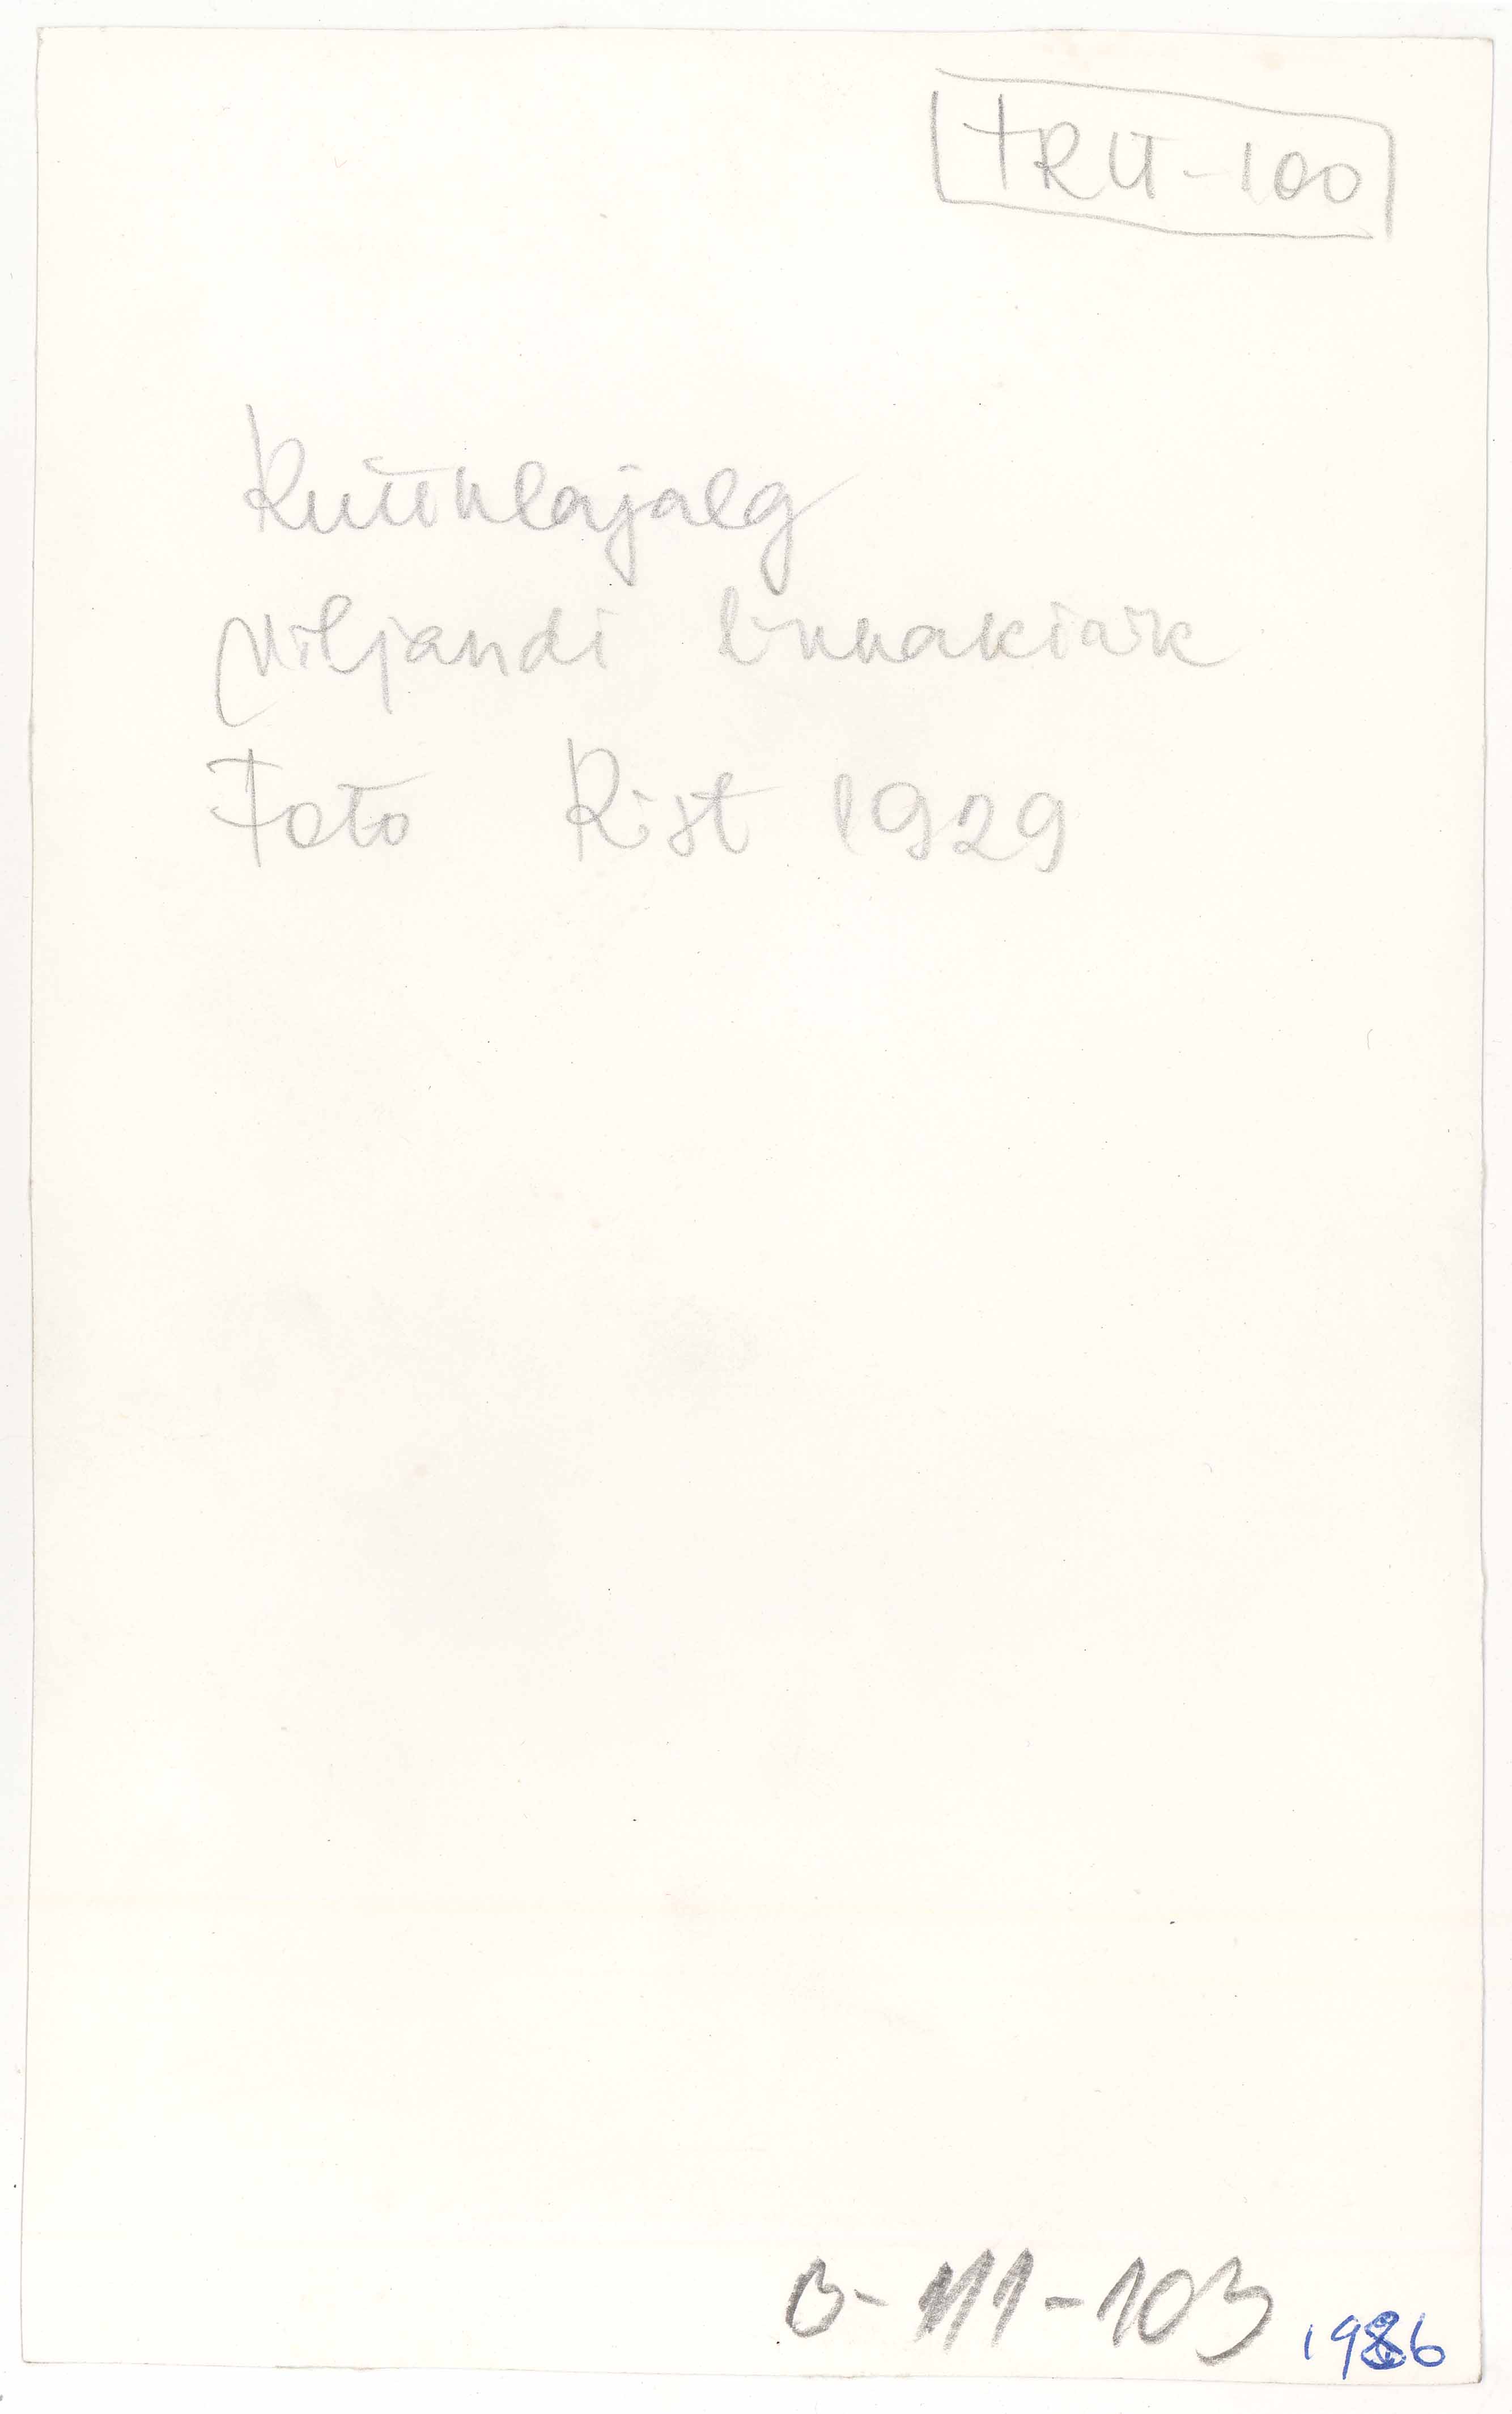 TRÜ-100
Küünlajalg
Viljandi linnakirik
Foto Rist 1929
B-111-103
1986